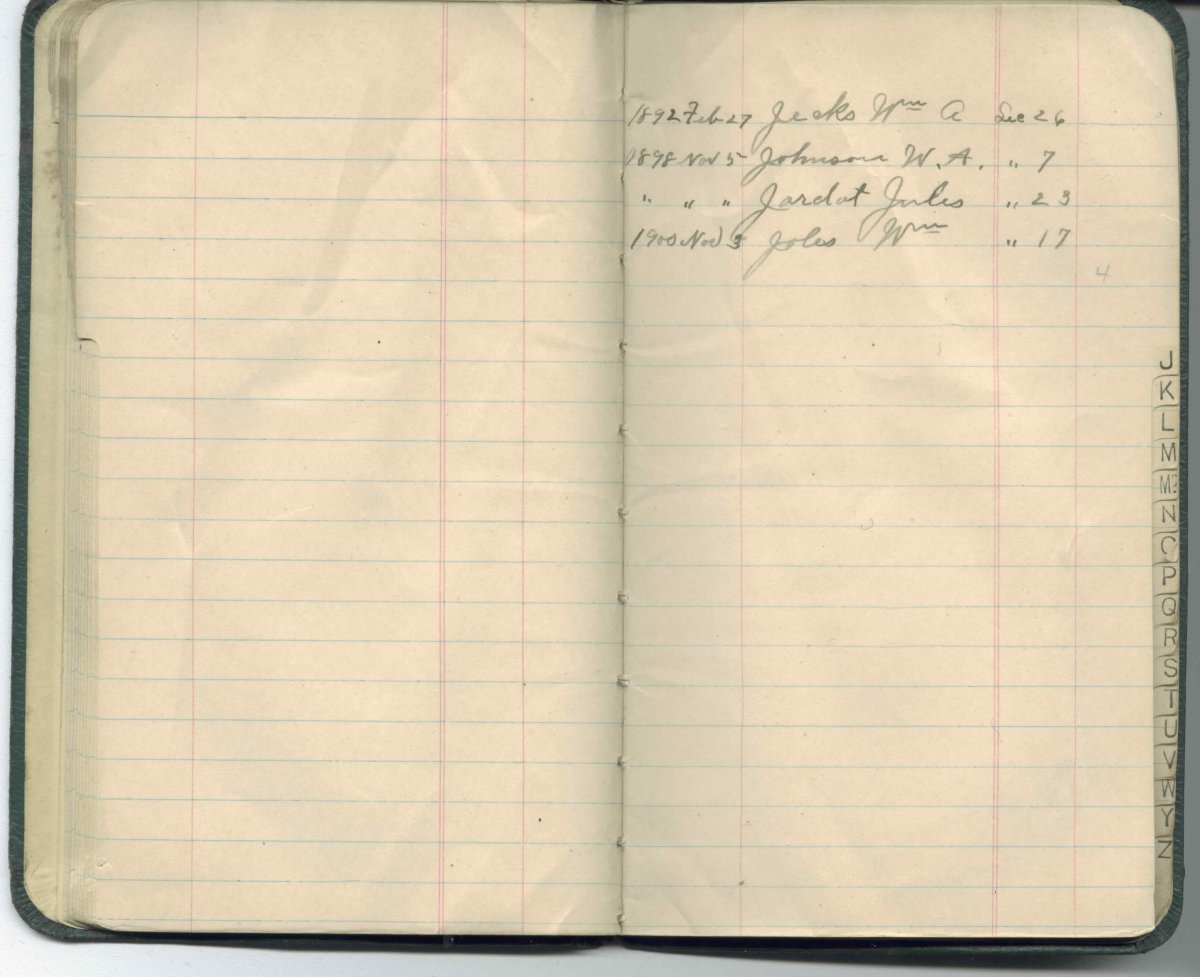 1892 Feb 27 Jecks Wm A Dec 26
1898 Nov 5 Johnson W. A. " 7
" " " Jardot Jules " 23
1900 Nov 3 Joles Wm " 17
4
J
K
L
M
Mc
N
O
P
Q
R
S
T
U
V
W
Y
Z